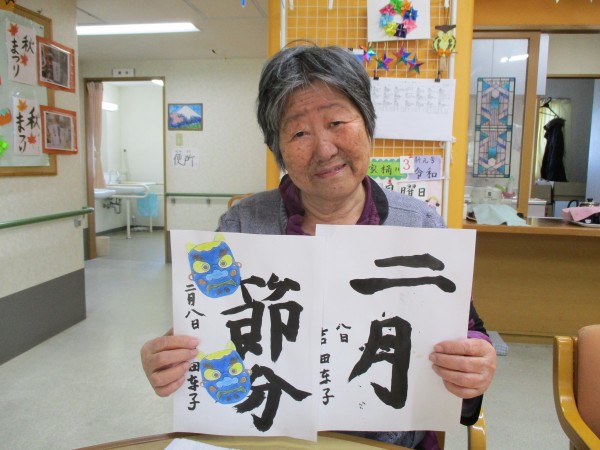 秋まつり
秋まつり
便所
3
令和
曜日
二月
八日
吉田友子
節分
二月八日
田友子